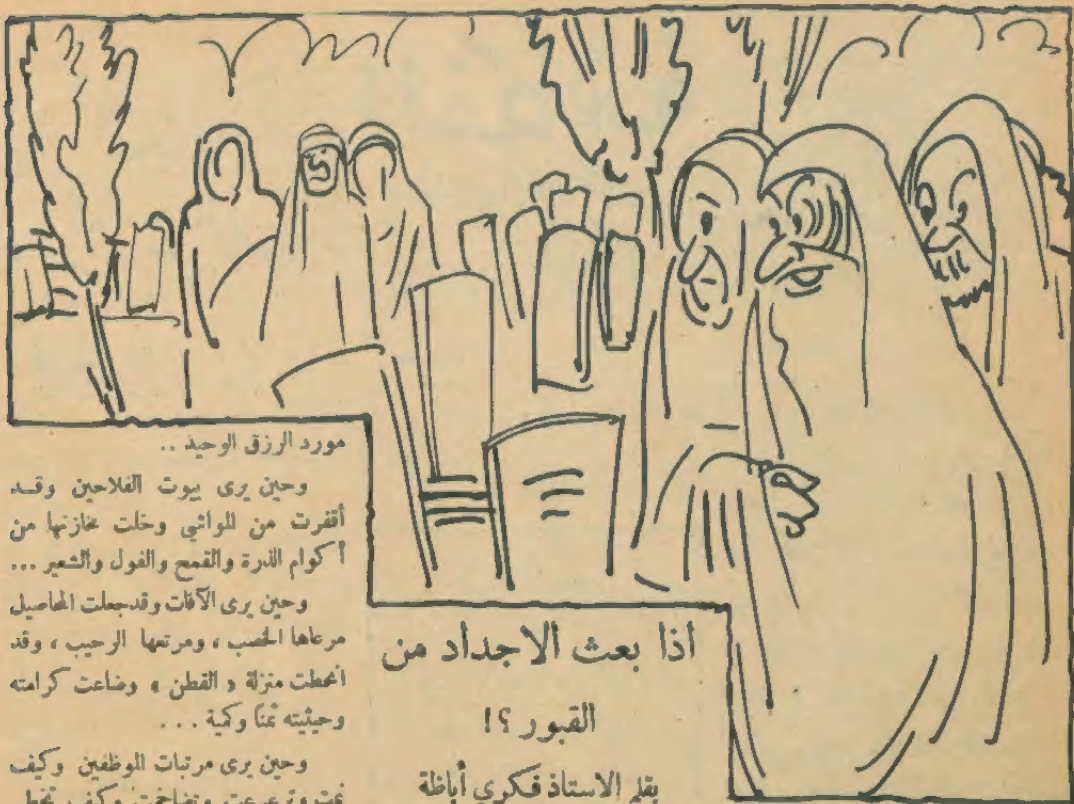 اذا بعث الاجداد من
القبور ؟!
بقلم الاستاذ فكري أباظة
مورد الرزق الوحيد ..
وحين يرى بيوت الفلاحين وقد
أقفرت من المواشي وخلت مخازنها من
أكوام الذرة والقمح والفول والشعير ...
وحين يرى الآفات وقد جعلت المحاصيل
مرعاها الخصب ، ومرتعها الرحيب ، وقد
انحطت منزلة « القطن » وضاعت كرامته
وحيثيته ثمناً وكمية ...
وحين يرى مرتبات الموظفين وكيف
نمت وترعرعت وتضاخمت وكيف تخطى